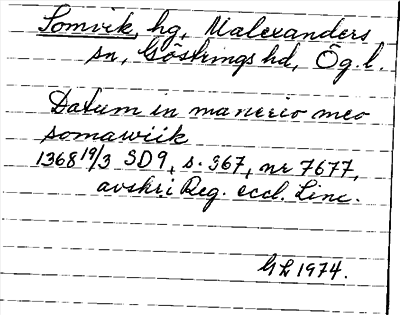 Somvik, hg, Malexanders
sn, Göstrings hd, Ög.l.
Datum in manerio meo
somawiik
1368 19/3 SD9, s. 367, nr 7677,
avskr i Reg. eccl. Linc.
GL 1974.